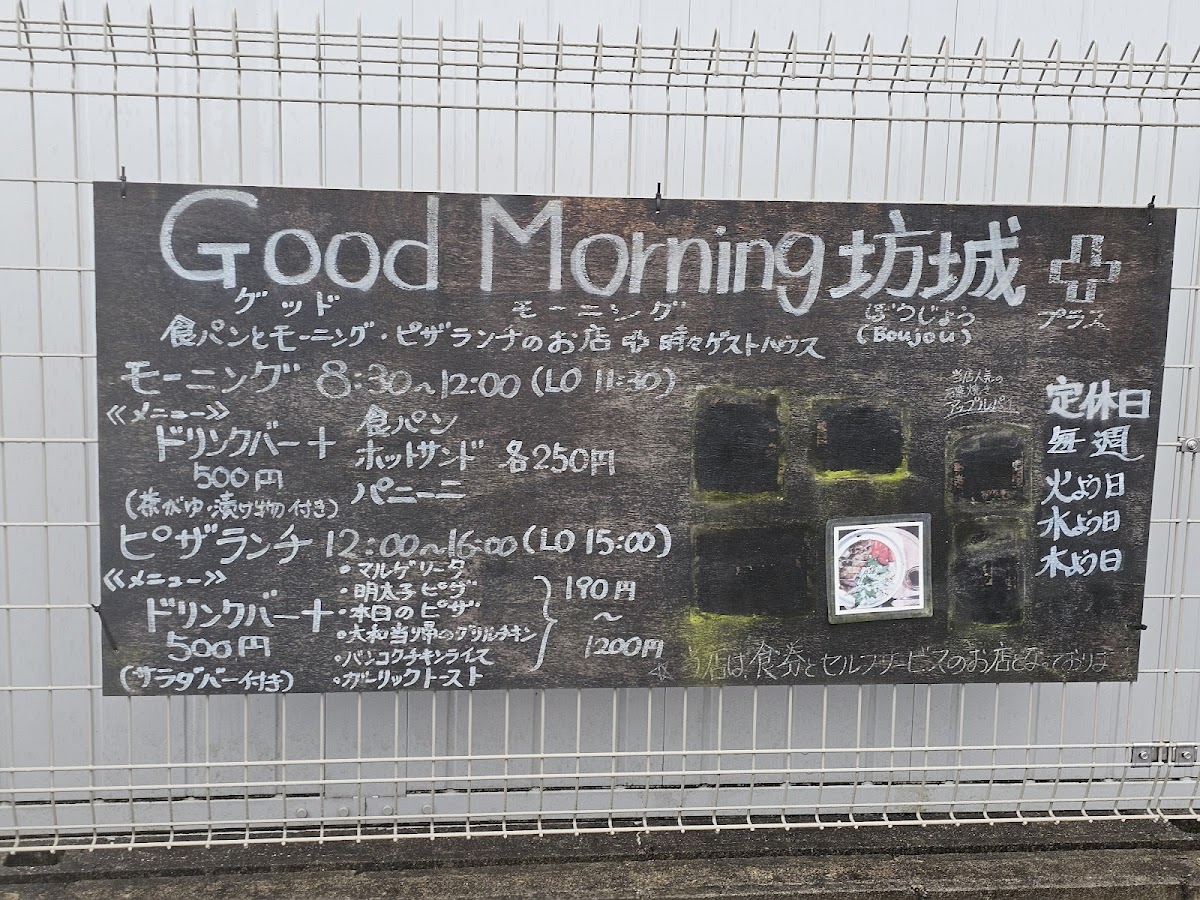 Good Morning 坊城
グッド モーニング ぼうじょう プラス
(Boujou)
食パンとモーニング・ピザランチのお店 時々ゲストハウス
モーニング 8:30～12:00 (LO 11:30)
≪メニュー≫
ドリンクバー＋
500円
(茶がゆ・漬け物付き)
食パン
ホットサンド 各250円
パニーニ
ピザランチ 12:00～16:00 (LO 15:00)
≪メニュー≫
ドリンクバー＋
500円
(サラダバー付き)
・マルゲリータ
・明太子ピザ
・本日のピザ
・大和当帰のグリルチキン
・バンコクチキンライス
・ガーリックトースト
190円
～
1200円
当店人気の
アップルパイ
定休日
毎週
火よう日
水よう日
木よう日
当店は、食券とセルフサービスのお店となっておりま